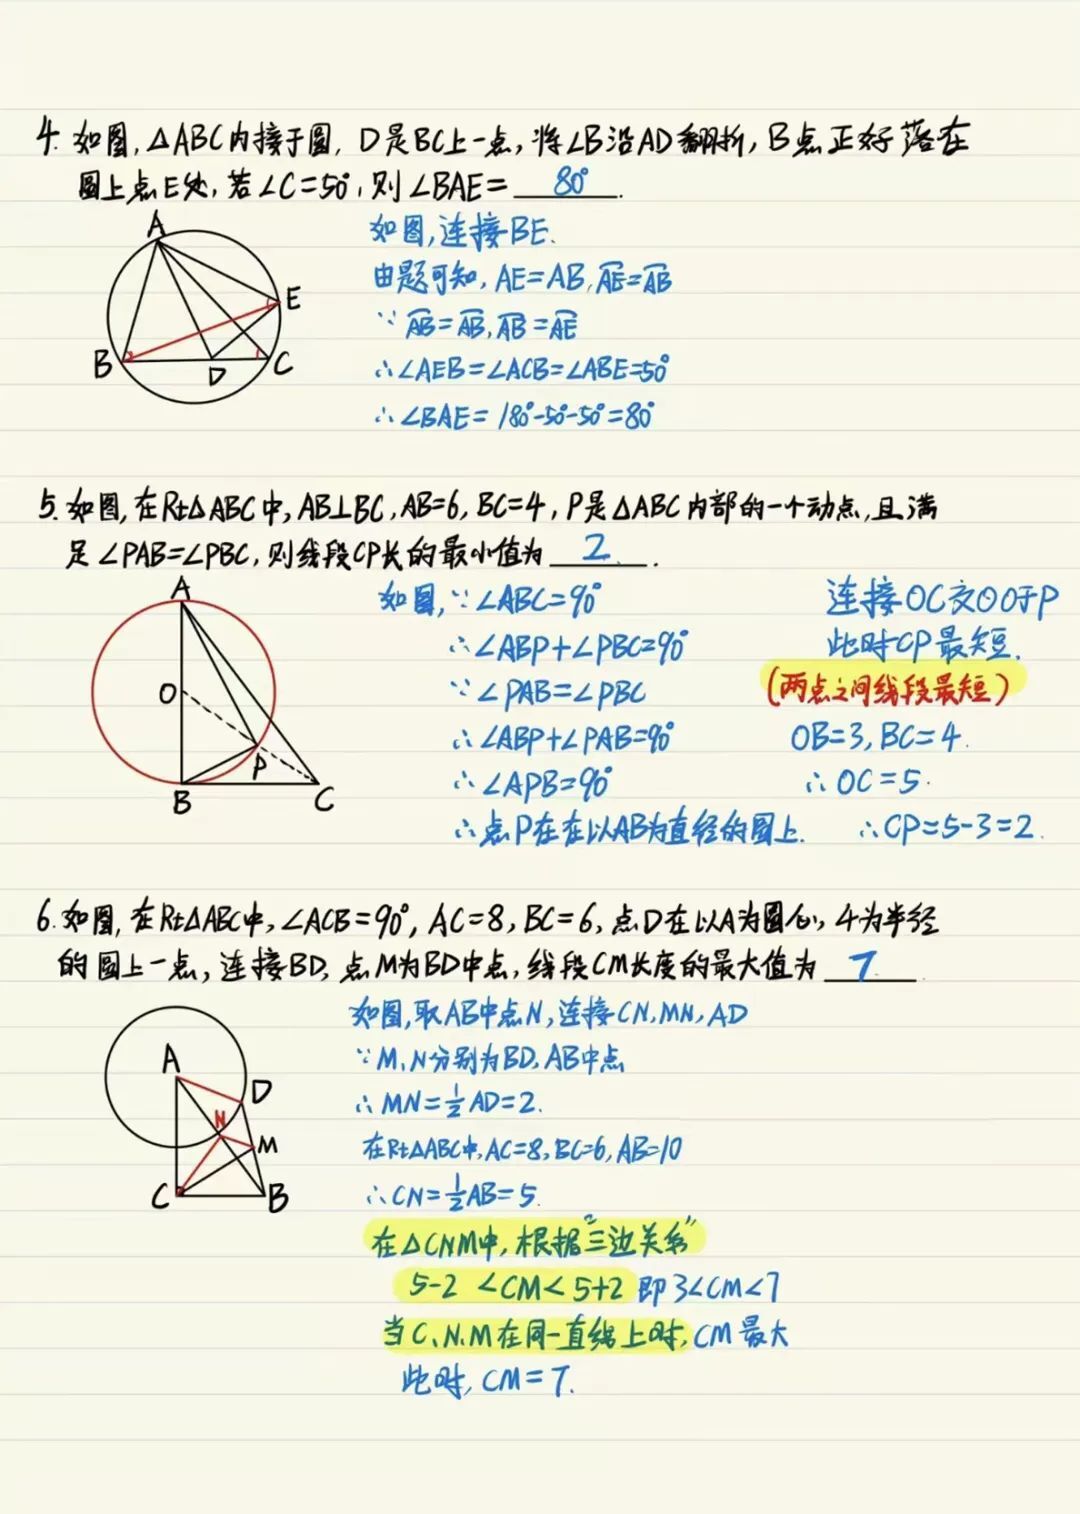 4. 如图,△ABC内接于圆,D是BC上一点,将∠B沿AD翻折,B点正好落在
圆上点E处,若∠C=50°,则∠BAE=80°.
如图,连接BE.
由题可知,AE=AB,A͡E=A͡B
∵A͡B=A͡B,A͡B=A͡E
∴∠AEB=∠ACB=∠ABE=50°
∴∠BAE=180°-50°-50°=80°
A
E
B
D
C
5. 如图,在Rt△ABC中,AB⊥BC,AB=6,BC=4,P是△ABC内部的一个动点,且满
足∠PAB=∠PBC,则线段CP长的最小值为2.
如图,∵∠ABC=90°
∴∠ABP+∠PBC=90°
∵∠PAB=∠PBC
∴∠ABP+∠PAB=90°
∴∠APB=90°
∴点P在在以AB为直径的圆上.
连接OC交⊙O于P
此时CP最短.
(两点之间线段最短)
OB=3,BC=4.
∴OC=5.
∴CP=5-3=2.
A
O
P
B
C
6. 如图,在Rt△ABC中,∠ACB=90°,AC=8,BC=6,点D在以A为圆心,4为半径
的圆上一点,连接BD,点M为BD中点,线段CM长度的最大值为7.
如图,取AB中点N,连接CN,MN,AD
∵M,N分别为BD,AB中点
∴MN=½AD=2.
在Rt△ABC中,AC=8,BC=6,AB=10
∴CN=½AB=5.
在△CNM中,根据"三边关系"
5-2<CM<5+2即3<CM<7
当C、N、M在同一直线上时,CM最大
此时,CM=7.
A
D
N
M
C
B